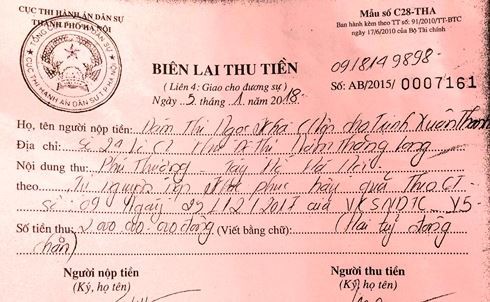 CỤC THI HÀNH ÁN DÂN SỰ
THÀNH PHỐ HÀ NỘI
Mẫu số C28-THA
Ban hành kèm theo TT số: 91/2010/TT-BTC
ngày 17/6/2010 của Bộ Tài chính
BIÊN LAI THU TIỀN
0918149898-
(Liên 4: Giao cho đương sự)
Số: AB/2015/ 0007161
Ngày 5 tháng 1 năm 2018-
Họ, tên người nộp tiền: Đàm Thị Ngọc Kha (Nộp cho Trịnh Xuân Thanh
Địa chỉ: Khu Đô Thị Nam Thăng Long
Nội dung thu: Phú Thượng - Tây Hồ Hà Nội
theo Tự nguyện nộp phục hậu quả Theo CT
số 09 ngày 29/12/2017 của VKSNDTC V5-
Số tiền thu: 2.000.000.000 đồng (Viết bằng chữ) (Hai tỷ đồng
chẵn)
Người nộp tiền
Người thu tiền
(Ký, họ tên)
(Ký, họ tên)